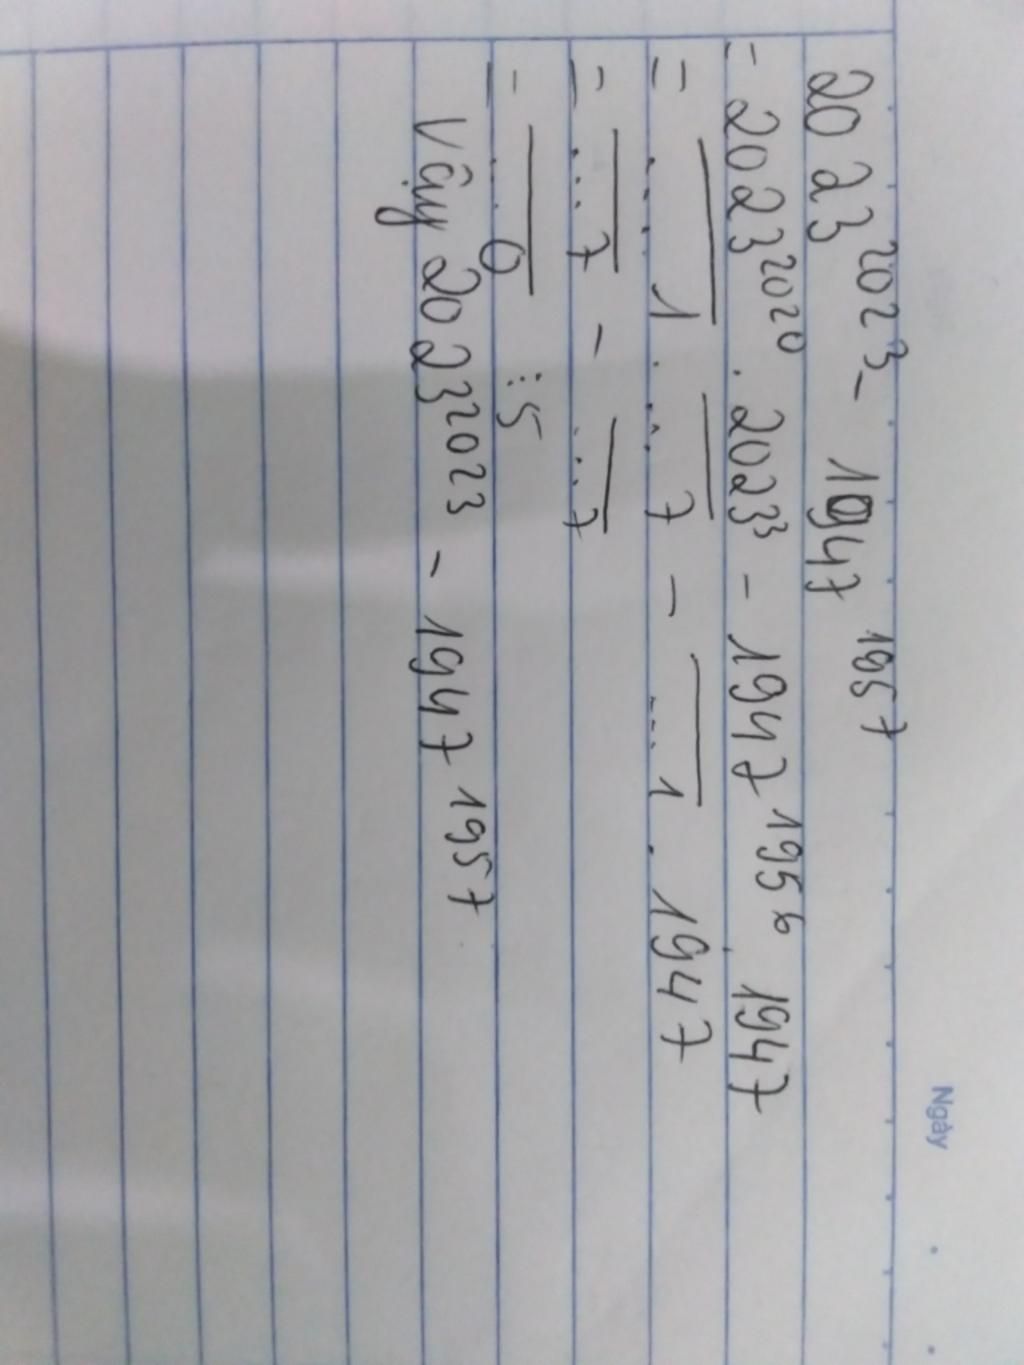 Ngày
2023²⁰²³ - 1947¹⁹⁵⁷
= 2023²⁰²⁰ . 2023³ - 1947¹⁹⁵⁶ . 1947
= ....1 . ...7 - ...1 . 1947
= ...7 - ...7
= ...0 ⋮ 5
Vậy 2023²⁰²³ - 1947¹⁹⁵⁷